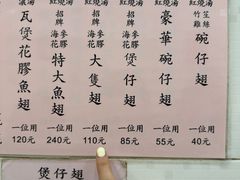 紅燒湯
竹笙
雞絲
碗仔翅
一位用
40元
紅燒湯
豪華碗仔翅
一位用
55元
紅燒湯
招牌
花膠
煲仔翅
一位用
85元
紅燒湯
招牌
花膠
大隻翅
一位用
110元
紅燒湯
招牌
花膠
特大魚翅
一位用
240元
湯
瓦煲花膠魚翅
一位用
120元
煲仔翅